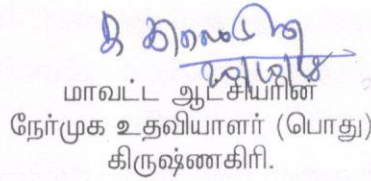 மாவட்ட ஆட்சியரின்
நேர்முக உதவியாளர் (பொது)
கிருஷ்ணகிரி.